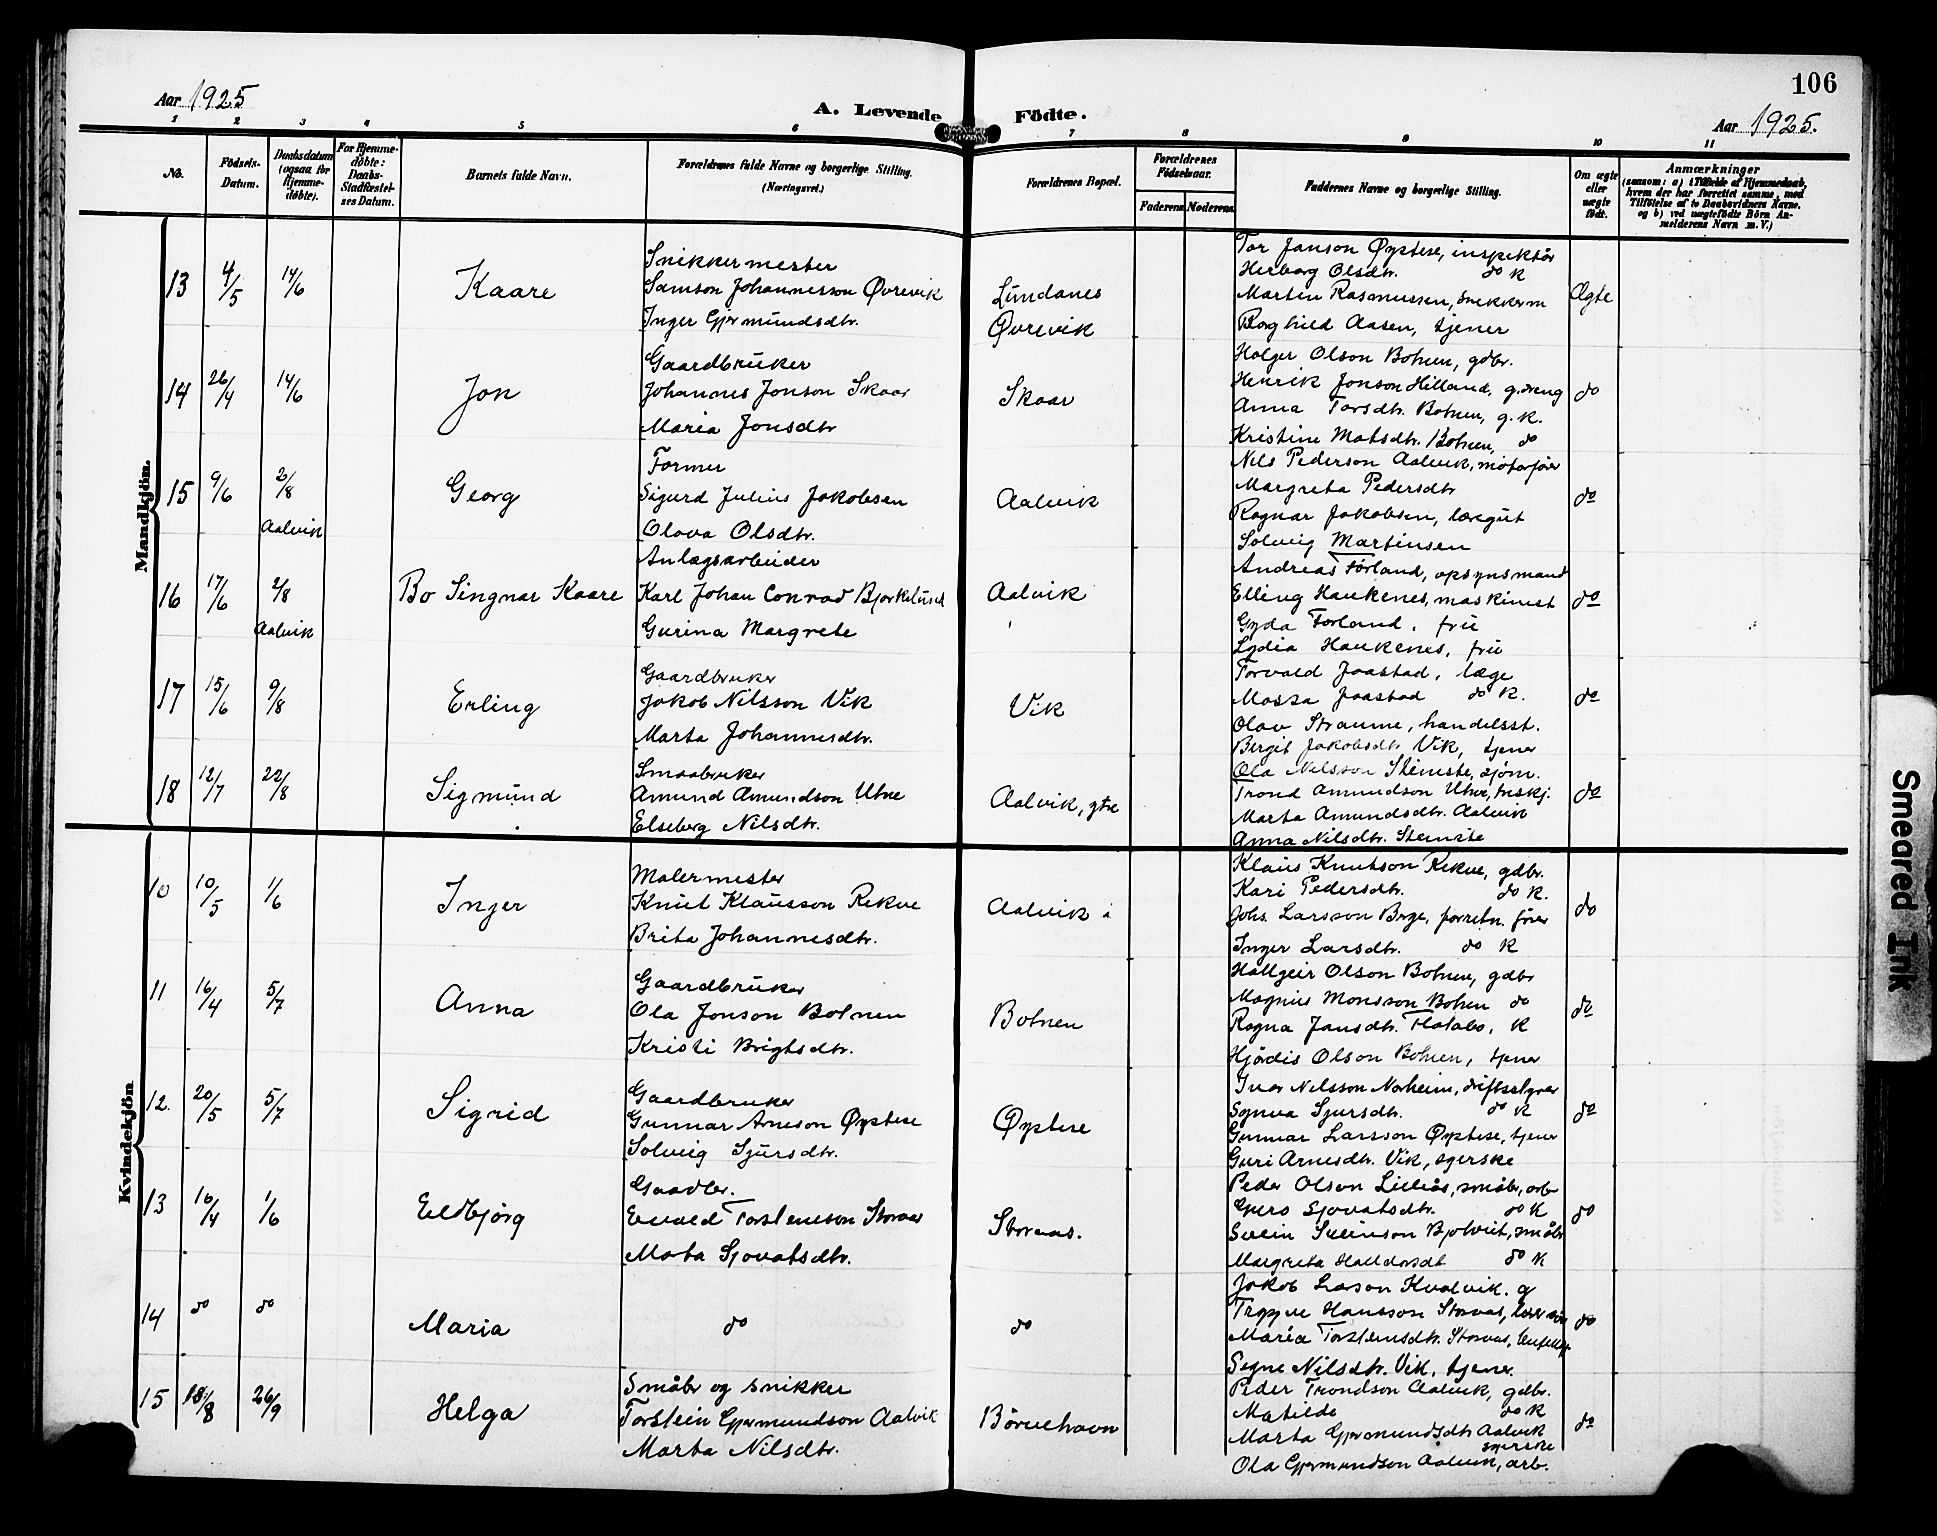 106
Aar 1925
A. Levende Födte.
Aar 1925.
1 2 3 4 5 6 7 8 9 10 11
No.
Födsels-Datum.
Daabsdatum (ogsaa for Hjemmedöbte).
For Hjemmedöbte: Daabs-Stadfæstelses Datum.
Barnets fulde Navn.
Forældrenes fulde Navne og borgerlige Stilling. (Næringsvei.)
Forældrenes Bopæl.
Forældrenes Födselsaar.
Faderens Moderens
Faddernes Navne og borgerlige Stilling.
Om ægte eller uægte födt.
Anmærkninger
(saasom: a) i Tilfælde af Hjemmedaab, hvem der har forrettet samme, med Tilföielse af to Daabsvidners Navne, og b) ved uægtefödte Börn Anmelderens Navn m. V.)
Mandkjön.
13 4/5 14/6 Kaare
Snikkermester
Samson Johannesson Øvrevik
Inger Gjermundsdtr.
Lundanes
Øvrevik
Tor Janson Øystese, inspektör
Herborg Olsdtr. do K
Martin Rasmussen, snekkerm
Borghild Aasen, tjener
Ægte
14 26/4 14/6 Jon
Gaardbruker
Johannes Jonson Skaar
Maria Jonsdtr
Skaar
Holger Olson Botnen, gdbr.
Henrik Jonson Hilland, g.dreng
Anna Torsdtr. Botnen, g. K.
Kristine Matsdtr. Botnen, do
do
15 9/6 2/8 Aalvik Georg
Former
Sigurd Julius Jakobsen
Olava Olsdtr.
Aalvik
Nils Pederson Aalvik, motorfører
Margreta Pedersdtr
Ragnar Jakobsen, læregut
Solveig Martinsen
do
16 17/6 2/8 Aalvik Bo Singnar Kaare
Anlægsarbeider
Karl Johan Conrad Bjorkelund
Gurina Margrete
Aalvik
Andreas Førland, opsynsmand
Elling Haukenes, maskinist
Gyda Førland, frü
Lydia Haukenes, frü
do
17 15/6 9/8 Erling
Gaardbruker
Jakob Nilsson Vik
Marta Johannesdtr.
Vik
Torvald Jaastad, læge
Jaastad do K.
Olav Straume, handelsst.
Bergit Jakobsdtr Vik, tjener
do
18 12/7 22/8 Sigmund
Smaabruker
Amund Amundson Utne
Elseberg Nilsdtr.
Aalvik, ytre
Ola Nilsson Steinstø, sjøm.
Trond Amundson Utne,
Marta Amundsdtr. Aalvik
Anna Nilsdtr. Steinstø
do
Kvindekjön
10 10/5 1/6 Inger
Malermester
Knut Klausson Rekve
Brita Johannesdtr.
Aalvik i
Klaus Knutson Rekve, gdbr.
Kari Pedersdtr. do K.
Johs. Larsson Berge, forretn. fører
Inger Larsdtr. do K
do
11 16/4 5/7 Anna
Gaardbruker
Ola Jonson Botnen
Kristi Brigtsdtr.
Botnen
Hallgeir Olson Botnen, gdbr
Magnus Monsson Botnen do
Ragna Jansdtr. Flotabø, K
Hjørdis Olson Botnen, tjener
do
12. 20/5 5/7 Sigrid
Gaardbruker
Gunnar Arneson Øystese
Solveig Sjursdtr.
Øystese
Ivar Nilsson Norheim, driftsstyrer
Synva Sjursdtr. do K
Gunnar Larsson Øystese, tjener
Guri Arnesdtr. Vik, syerske
do
13 16/4 1/6 Eldbjörg
Gaardbr.
Eivald Torsteinson Storaas
Marta Sjovatsdtr.
Storaas.
Peder Olson Lilleås, småbr, arb
Gjuro Sjovatsdtr. do K
Svein Sveinson Bjolveit, småbr
Margreta Halldorsdt do K
do
14 do do Maria
do
do
Jakob Larson Kvalvik. g
Trygve Hansson Storaas,
Maria Torsteinsdtr. Storaas,
Signe Nilsdtr. Vik, tjener.
do
15 18/8 26/9 Helga
Småbr og snikker
Torstein Gjermundson Aalvik
Marta Nilsdtr.
Börvehavn
Peder Trondson Aalvik, gdbr.
Matilde do K
Marta Gjermundsdtr Aalvik syerske
Ola Gjermundson Aalvik, arb.
do
Smeared Ink